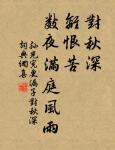 對秋深
離恨苦
數夜滿庭風雨
孫光憲更漏子對秋深
詞典網集